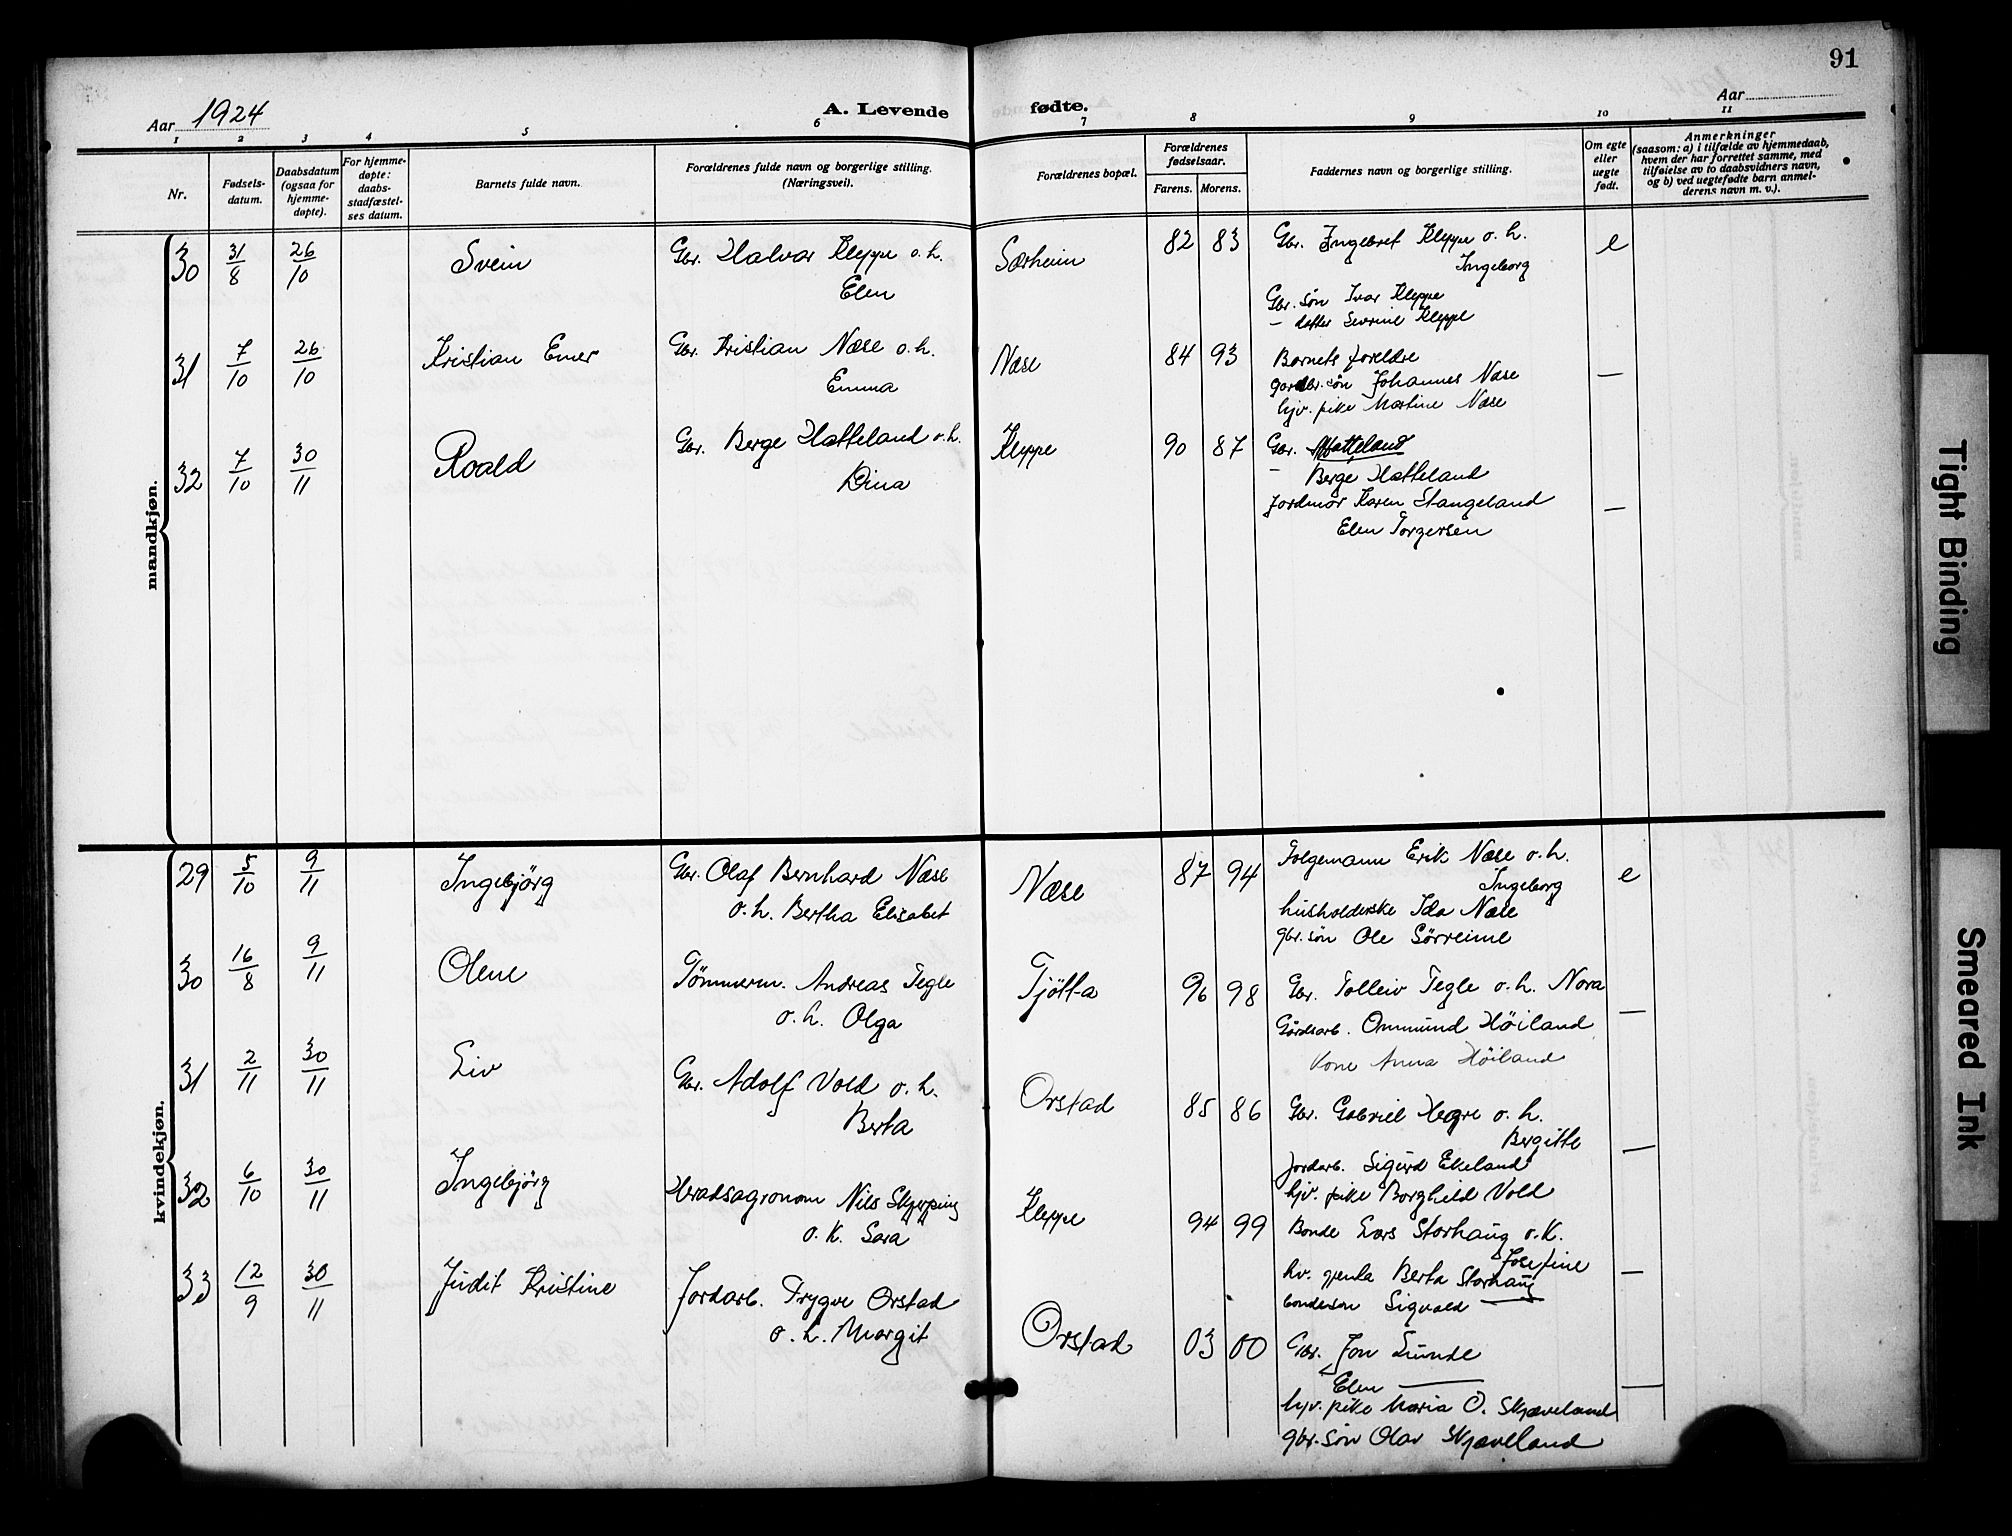 91
Aar 1924
A. Levende
fødte.
Aar
1 2 3 4 5 6 7 8 9 10 11
Nr.
Fødsels-
datum.
Daabsdatum
(ogsaa for
hjemme-
døpte).
For hjemme-
døpte:
daabs-
stadfæstel-
ses datum.
Barnets fulde navn.
Forældrenes fulde navn og borgerlige stilling.
(Næringsvei).
Forældrenes bopæl.
Forældrenes
fødselsaar.
Farens. Morens.
Faddernes navn og borgerlige stilling.
Om egte
eller
uegte
født.
Anmerkninger
(saasom: a) i tilfælde av hjemmedaab,
hvem der har forrettet samme, med
tilføielse av to daabsvidners navn,
og b) ved uegtefødte barn anmel-
derens navn m. v.).
mandkjøn.
30 31/8 26/10 Svein Gbr. Halvar Kleppe o.h. Særheim 82 83 Gbr. Ingebret Kleppe o.h. e
Elen Ingeborg
Gbr. søn Ivar Kleppe
— datter Sevrine Kleppe
31 7/10 26/10 Kristian Emer Gbr. Kristian Næse o.h. Næse 84 93 Barnets foreldre —
Emma gardbr. søn Johannes Næse
hjv. pike Martine Næse
32 7/10 30/11 Roald Gbr. Berge Hatteland o.h. Kleppe 90 87 Gbr. Hatteland
Dina — Berge Hatteland
Jordmor Karen Stangeland —
Elen Torgersen
kvindekjøn.
29 5/10 9/11 Ingebjørg Gbr. Olaf Bernhard Næse Næse 87 94 Folgemann Erik Næse o.h. e
o.h. Bertha Elisabet Ingeborg
husholderske Ida Næse
gbr. søn Ole Sörreime
30 16/8 9/11 Olene Tömmerm. Andreas Tegle Tjötta 96 98 Gbr. Tolleiv Tegle o.h. Nora —
o.h. Olga Gårdsarb. Ommund Höiland
Kone Anna Höiland
31 2/11 30/11 Liv Gbr. Adolf Vold o.h. Orstad 85 86 Gbr. Gabriel Hegre o.h. —
Berta Bergitte
Jordarb. Sigurd Ekeland
hjv. pike Borghild Vold
32 6/10 30/11 Ingebjörg Heradsagronom Nils Skjerpping Kleppe 94 99 Bonde Lars Storhaug o.K. —
o.K. Sara Josefine
hv. gjenta Berta Storhaug
bondeson Sigvald —
33 12/9 30/11 Judit Kristine Jordarb. Trygve Orstad Orstad 03 00 Gbr. Jon Lunde —
o.h. Margit Elen —
hjv. pike Maria O. Skjæveland
gbr. søn Olav Skjæveland
Tight Binding
Smeared Ink